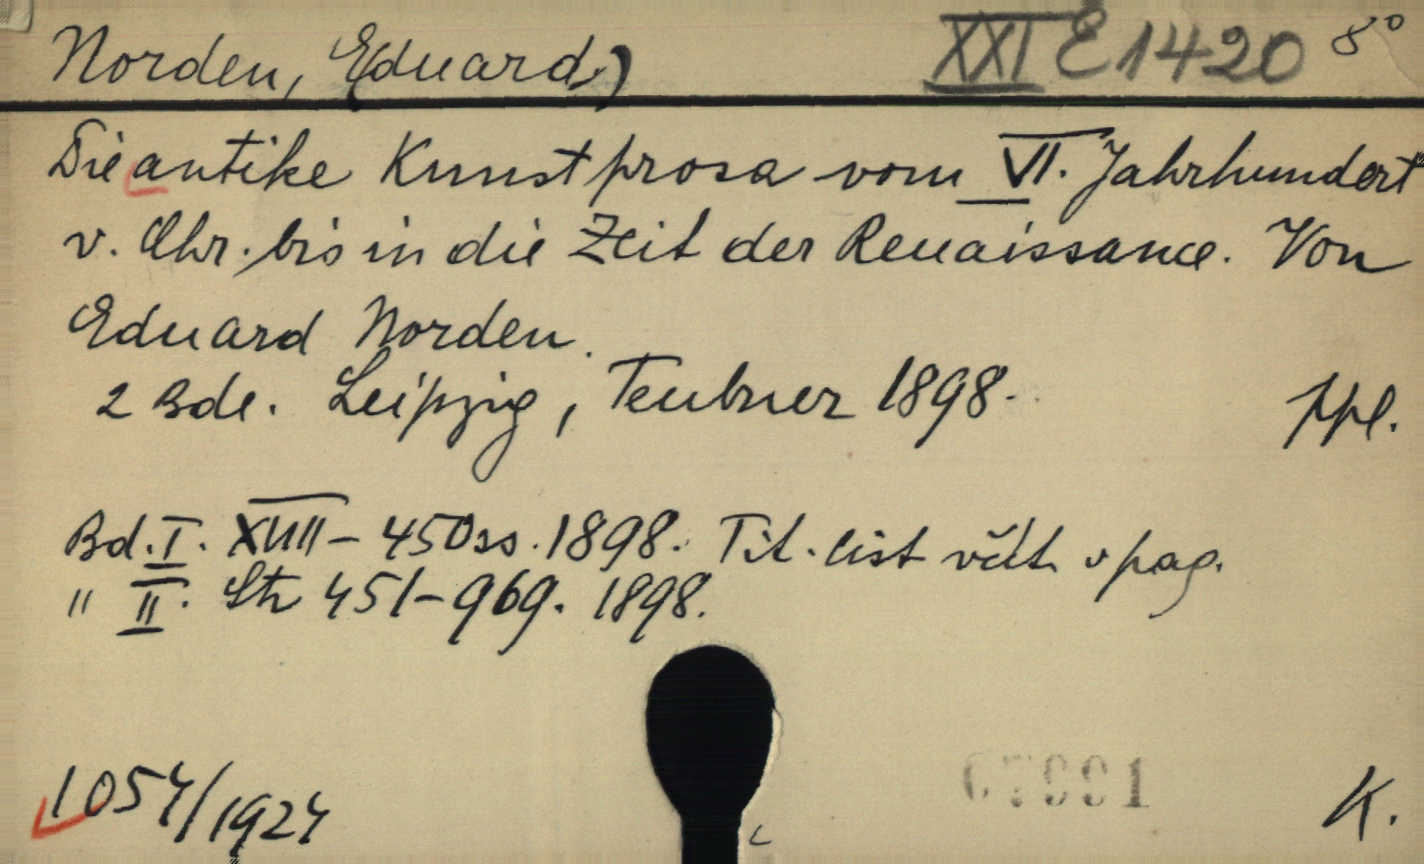 Norden, Eduard,) XXI E 1420 8°
Die antike Kunstprosa vom VI. Jahrhundert
v. Chr. bis in die Zeit der Renaissance. Von
Eduard Norden.
2 Bde. Leipzig, Teubner 1898. ppl.
Bd. I. XVIII - 450 ss. 1898. Tit. list včít. v pag.
" II. Str 451-969. 1898.
1054/1924 67991 K.